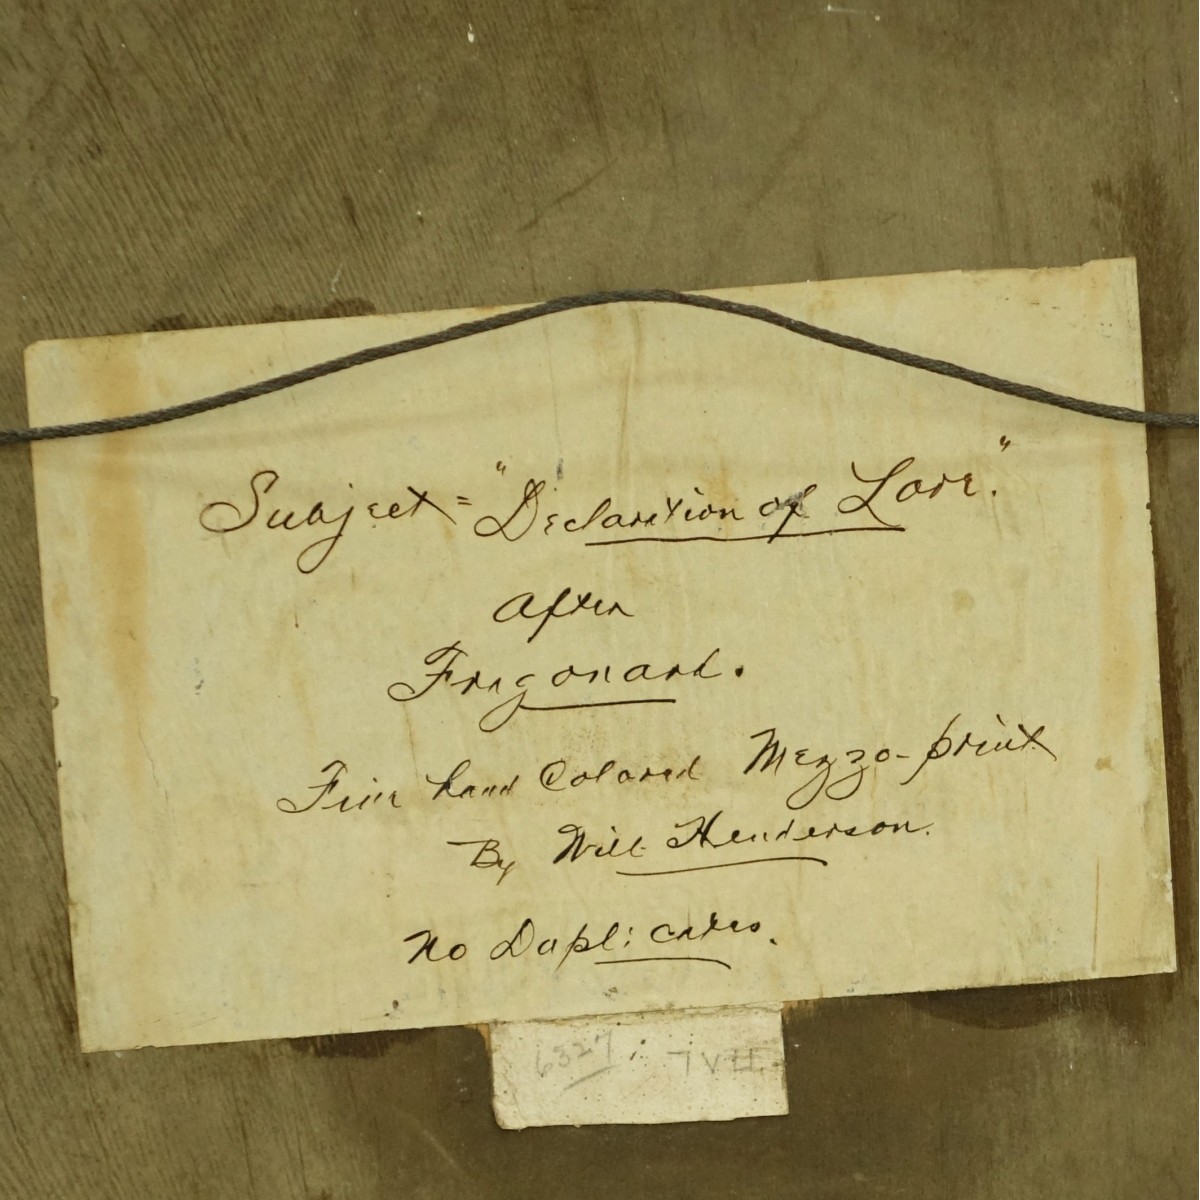 Subject = "Declaration of Love."
After
Fragonard.
Fine hand Colored Mezzo-print
By Will Henderson.
No Duplicates.
6327